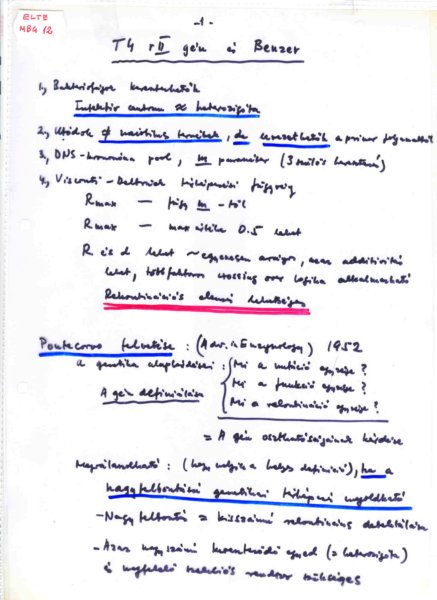 ELTE
MBG 12
-1-
T4 rII gén és Benzer
1, Bakteriofágok keresztezhetők
Infektív centrum ≈ heterozigóta
2, Utódok φ meiotikus termékek, de levezethetők a primer folyamatból
3, DNS-kromoszóma pool, m paraméter (3 szülős keresztezés)
4, Visconti-Delbrück térképezési függvény
Rmax — függ m-től
Rmax — max értéke 0.5 lehet
R és d lehet ~ egyenesen arányos, azaz additivitás
lehet, többfaktoros crossing over logika alkalmazható
Rekombinációs elemzés lehetséges
Pontecorvo felvetése : (Adv. in Enzymology) 1952
A genetika alapkérdései : Mi a mutáció egysége ?
Mi a funkció egysége ?
A gén definiálása
Mi a rekombináció egysége ?
= A gén oszthatóságának kérdése
Megválaszolható : (hogy melyik a helyes definíció), ha a
nagyfelbontású genetikai térképezés megoldható
- Nagy felbontás = kisszámú rekombináns detektálása
- Azaz nagyszámú kereszteződő egyed (= heterozigóta)
és megfelelő szelekciós rendszer szükséges